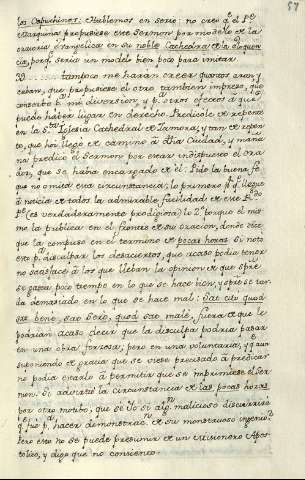 57
los Capuchinos: Hablemos en serio: no creo q.e el P.e
Marquina propusiese este Sermon por modelo de la
oratoria evangelica en su noble Cathedra de la eloquen
cia, porq. seria un modelo bien poco para imitar
33 tampoco me haran creer quantos aran, y
cuban, que propusiese el otro tambien impreso, que
conservo p.a mi diversion, y p.a otros efectos à que
puede haber lugar en derecho. Predicole de repente
en la S.ta Iglesia Cathedral de Zamora; y tan de repen
te, que hoi llegó de camino à dha Ciudad, y maña
na predicó el Sermon por estar indispuesto el Ora
dor, que se habia encargado de el. Pido la buena fe
que no omita esta circunstancia; lo primero p.a q.e llegue
à noticia de todos la admirable facilidad de este P.e
P.e (es verdaderamente prodigiosa) lo 2.o porque el mis
mo la publica en el frontis de su oracion, donde dice
que la compuso en el termino de pocas horas. Si noto
esto p.a disculpar los desaciertos, que acaso podia tener
no satisface à los que lleban la opinion de que sp̃re
se gasta poco tiempo en lo que se hace bien, y sp̃re se tar
da demasiado en lo que se hace mal: Sat cito quod
sat bene, sat sero, quod sat male, fuera de que le
podrian acaso decir que la disculpa podria pasar
en una obra forzosa; pero en una voluntaria, y q aun
suponiendo de gracia que se viese precisado à predicar
no podia estarlo à permitir que se imprimiese el Ser
mon. Si advirtió la circunstancia de las pocas horas
por otro motibo, que se Yo si alg.n malicioso discurrirà
q.e fue p.a hacer demonstrac.n de su monstruoso ingenio?
Pero esto no se puede presumir de un Misionero Apos
tolico, y digo que no consiento.